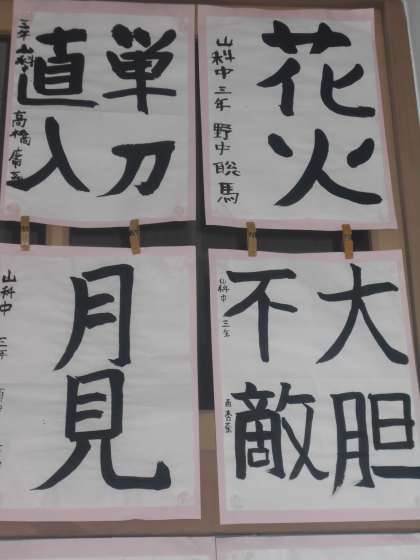 花火
山科中 三年 野中聡馬
単刀
直入
三年 山科中
高橋
大胆
不敵
山科中 三年
月見
山科中 三年